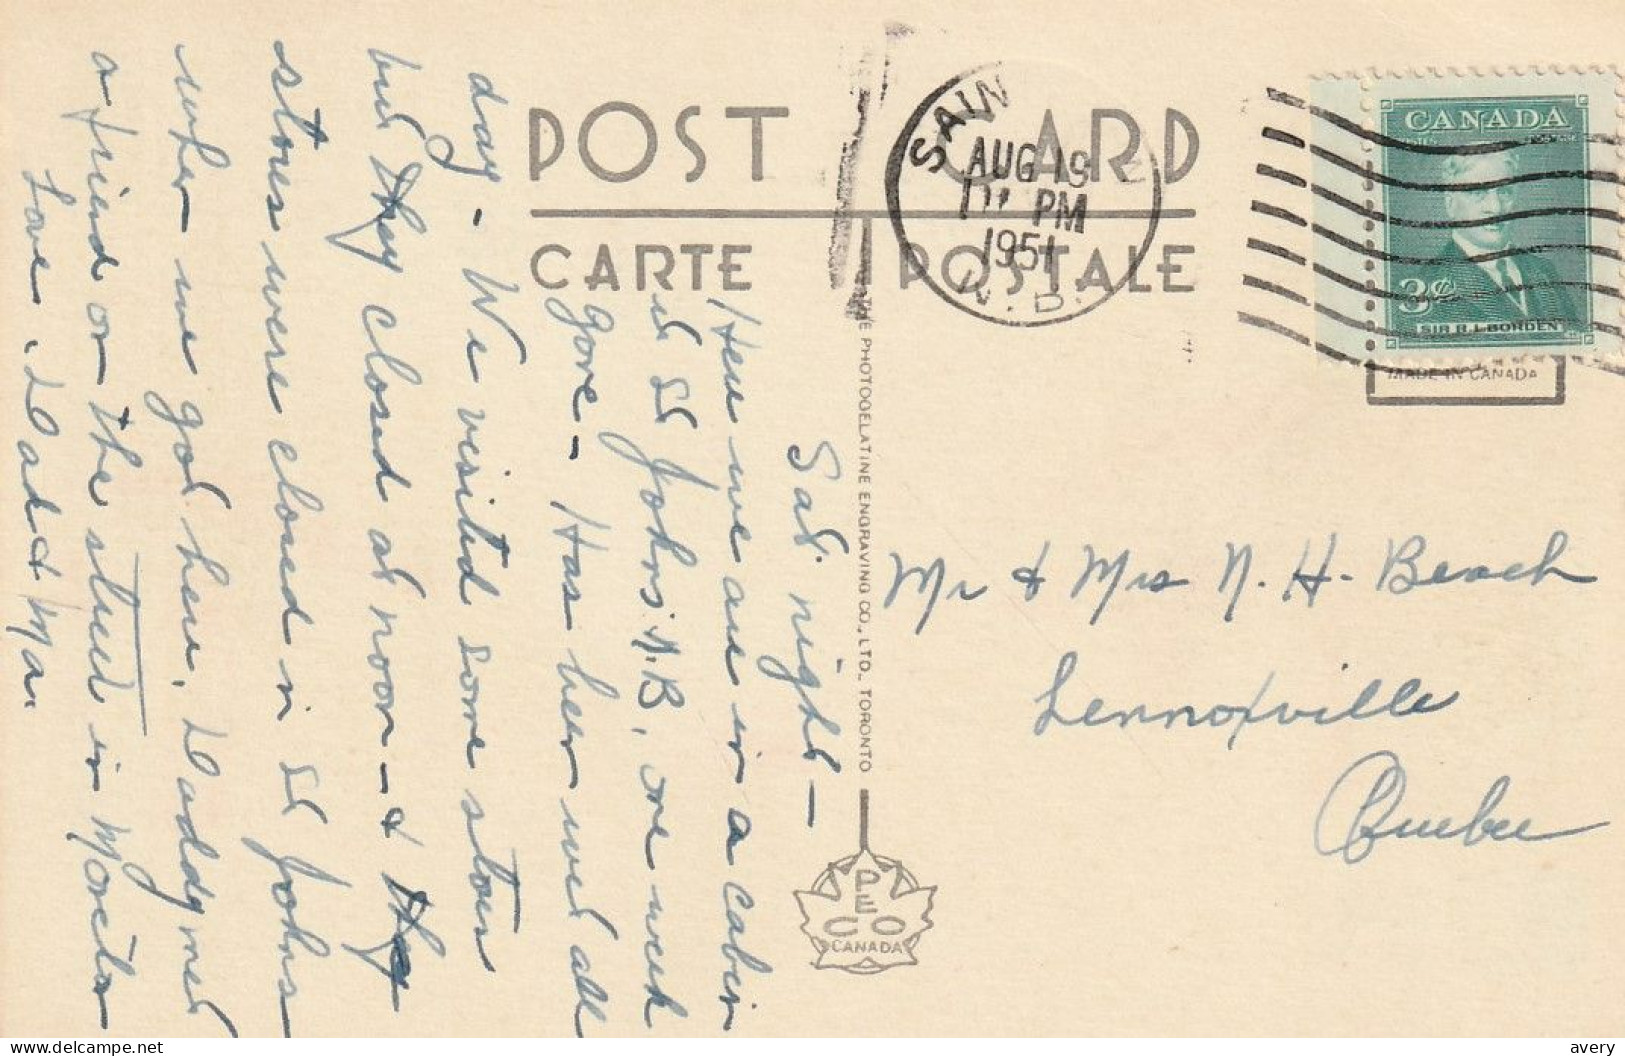 POST CARD
CARTE POSTALE
SAIN
AUG 19
PM
1951
N.B.
CANADA
3¢
SIR R.L. BORDEN
MADE IN CANADA
THE PHOTOGELATINE ENGRAVING CO., LTD., TORONTO
PECO
CANADA
Sat. night —
Here we are in a cabin
in St Johns. N.B. one week
gone — Has been wet all
day — We visited some stores
but they closed at noon — & they
stores were closed in St Johns
when we got here. Daddy met
a friend on the street in Moncton
Love, Dad & Ma.
Mr & Mrs N. H. Beach
Lennoxville
Quebec
avery
www.delcampe.net